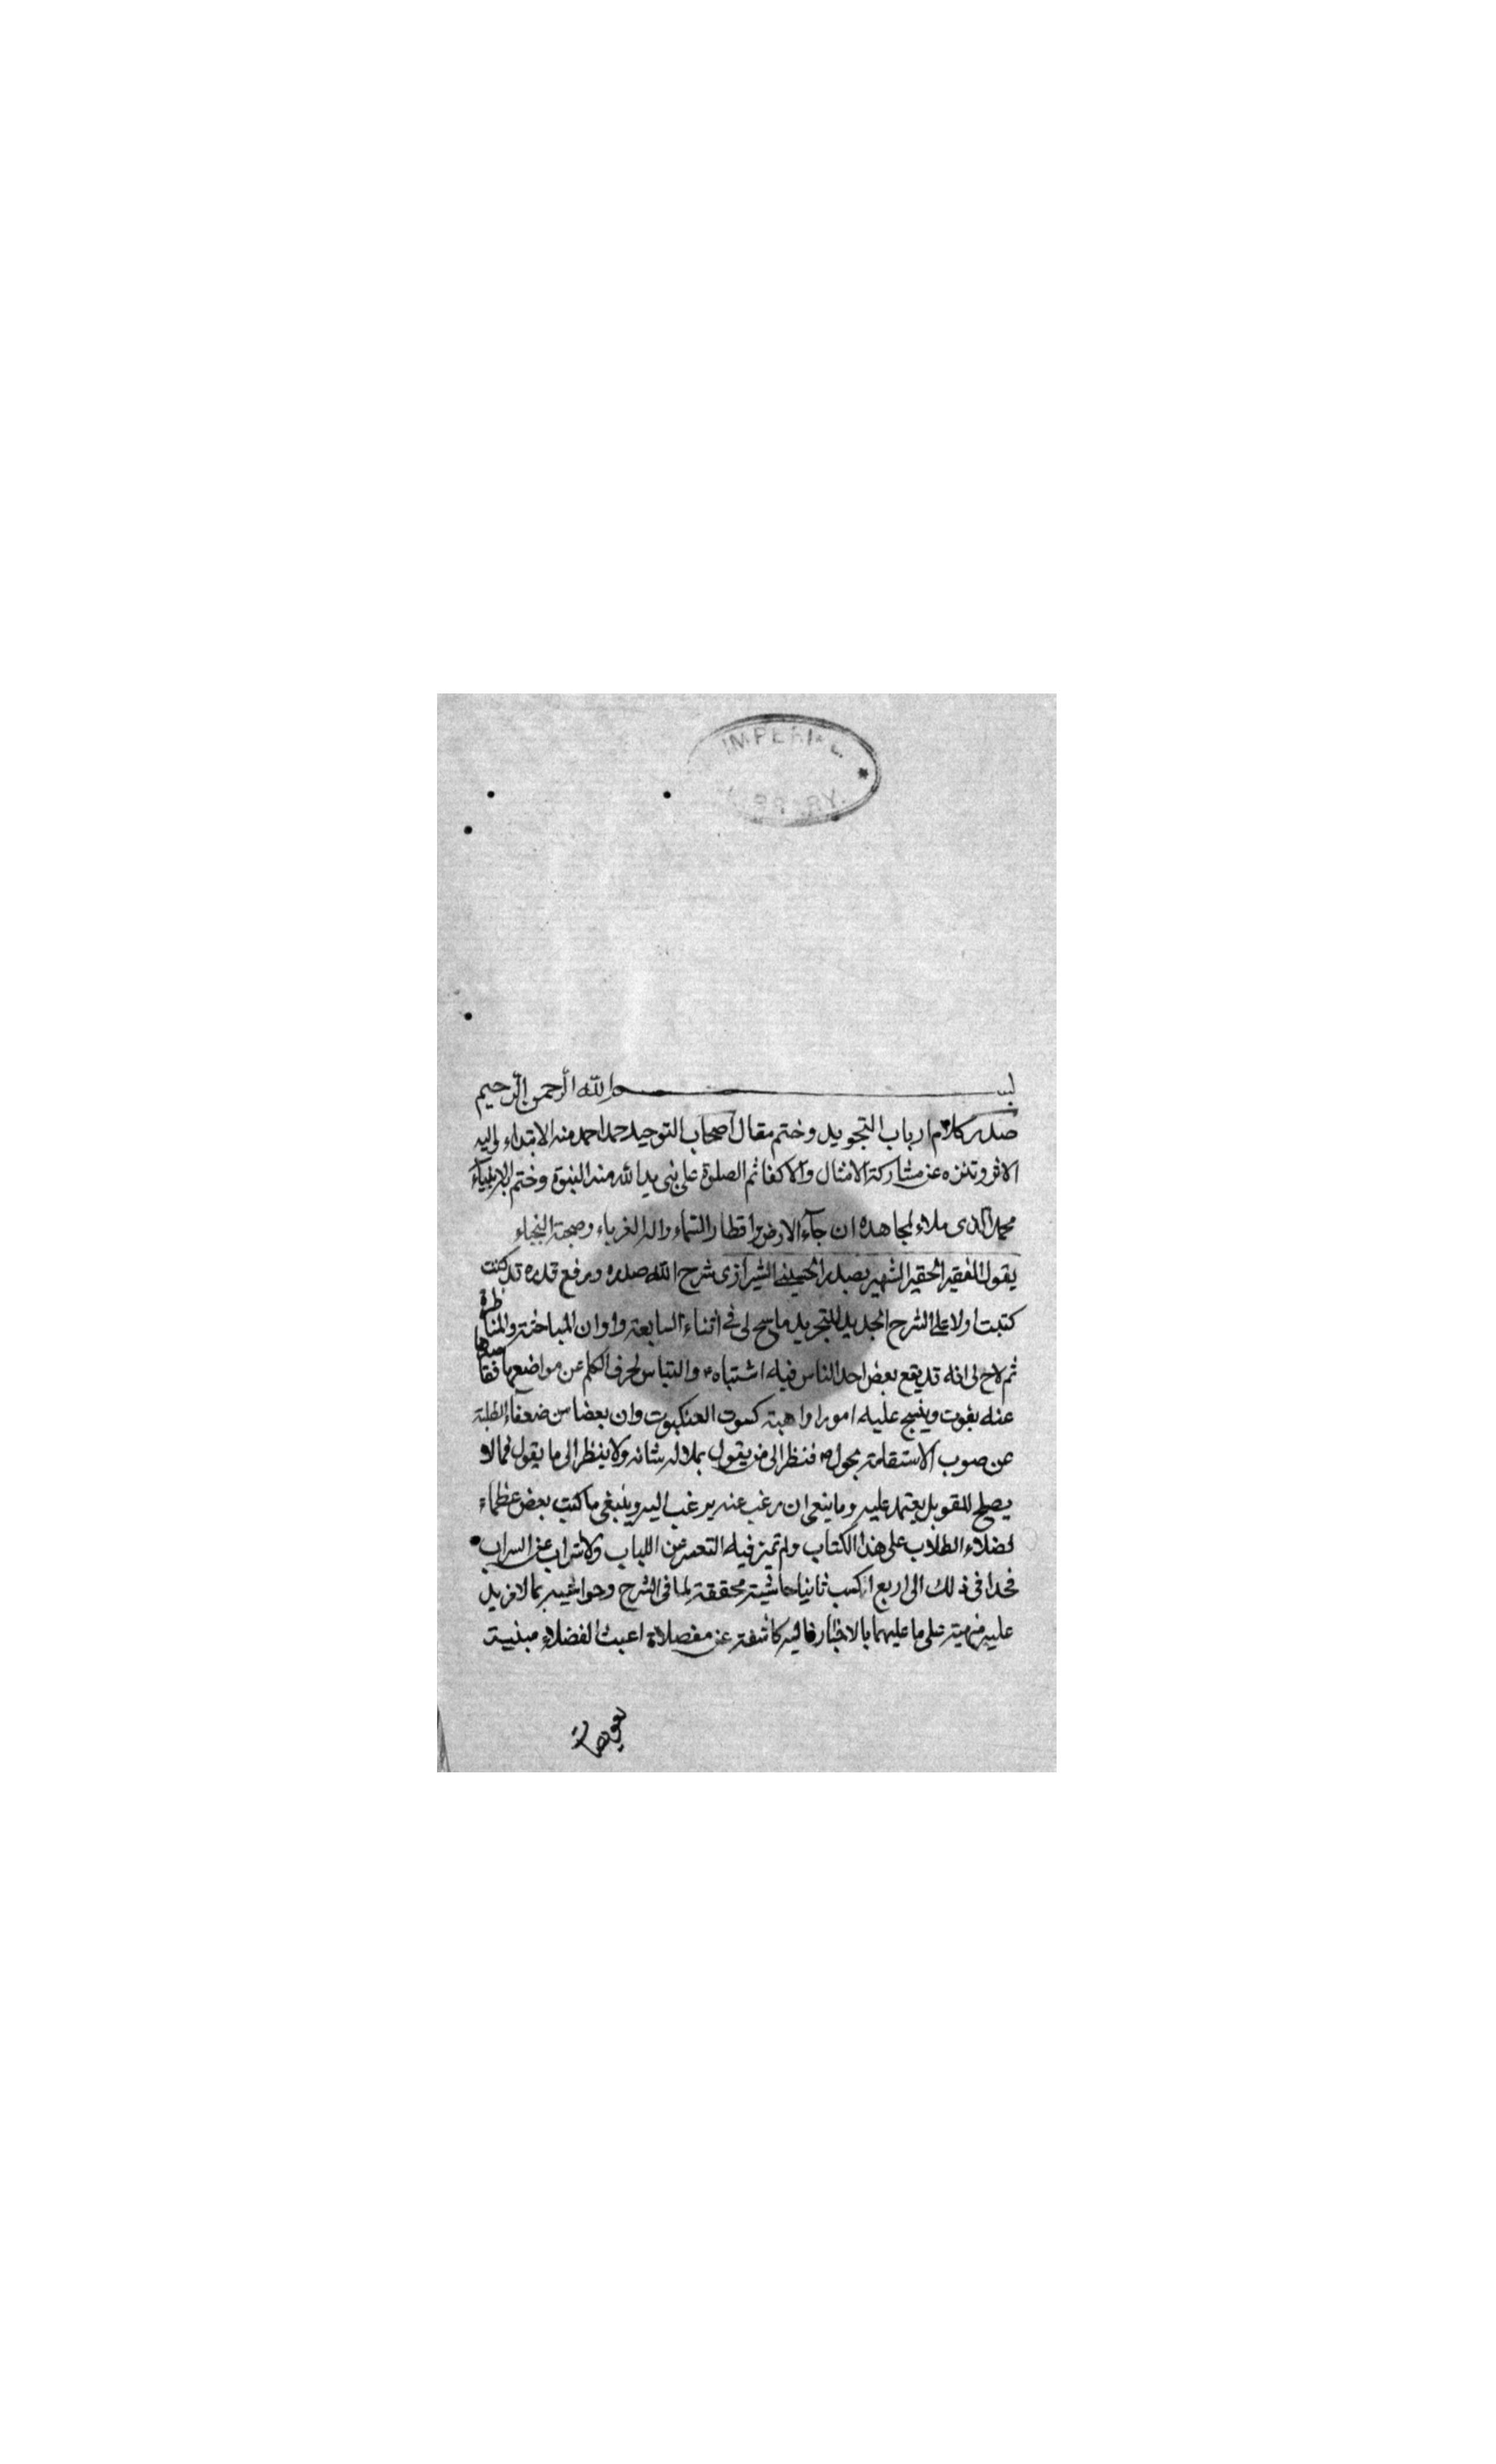 IMPERIAL
LIBRARY.
بسم الله الرحمن الرحيم
صدر كلام ارباب التجويد وختم مقال اصحاب التوحيد حمد احمد منه الابتداء واليه
الا وتنزه عن مشاركة الامثال والاكفا ثم الصلوة على نبى الله منه النبوة وختم الانبياء
محمد الذى ملاء لمجاهده ان جآء الارض واقطار السماء واله الغرباء وصحبة النجباء
يقول الفقير الحقير الشهير بصدر الحسينى الشيرازى شرح الله صدره ورفع قدره قد كنت
كتبت اولا على الشرح الجديد للتجريد ما سنح لى فى اثناء السابعة واوان المباحثة والمناظرة
ثم لاح لى انه قد يقع بعض احد الناس فيه اشتباه والتباس لحرف الكلم عن مواضعها
عنه بفوت وينسج عليه امورا واهية كبيوت العنكبوت وان بعضا من ضعفاء الطلبة
عن صوب الاستقامة يحول فنظر الى من يقول بملاله شانه ولا ينظر الى ما يقول فما لا
يصلح للقويل يعتمد عليه وما ينبغى ان يرغب عنه يرغب اليه وينبغى ما كتب بعض عظماء
فضلاء الطلاب على هذا الكتاب ولم تميز فيه القشر عن اللباب ولا شراب عن السراب
فحدا فى ذلك الى اربع اكتب ثانيا حاشية محققة لما فى الشرح وحواشيه بما لا مزيد
عليه منهية على ما عليهما بالاختبار فاليه كاشفة عن مفصلاة اعيت الفضلاء مبنية